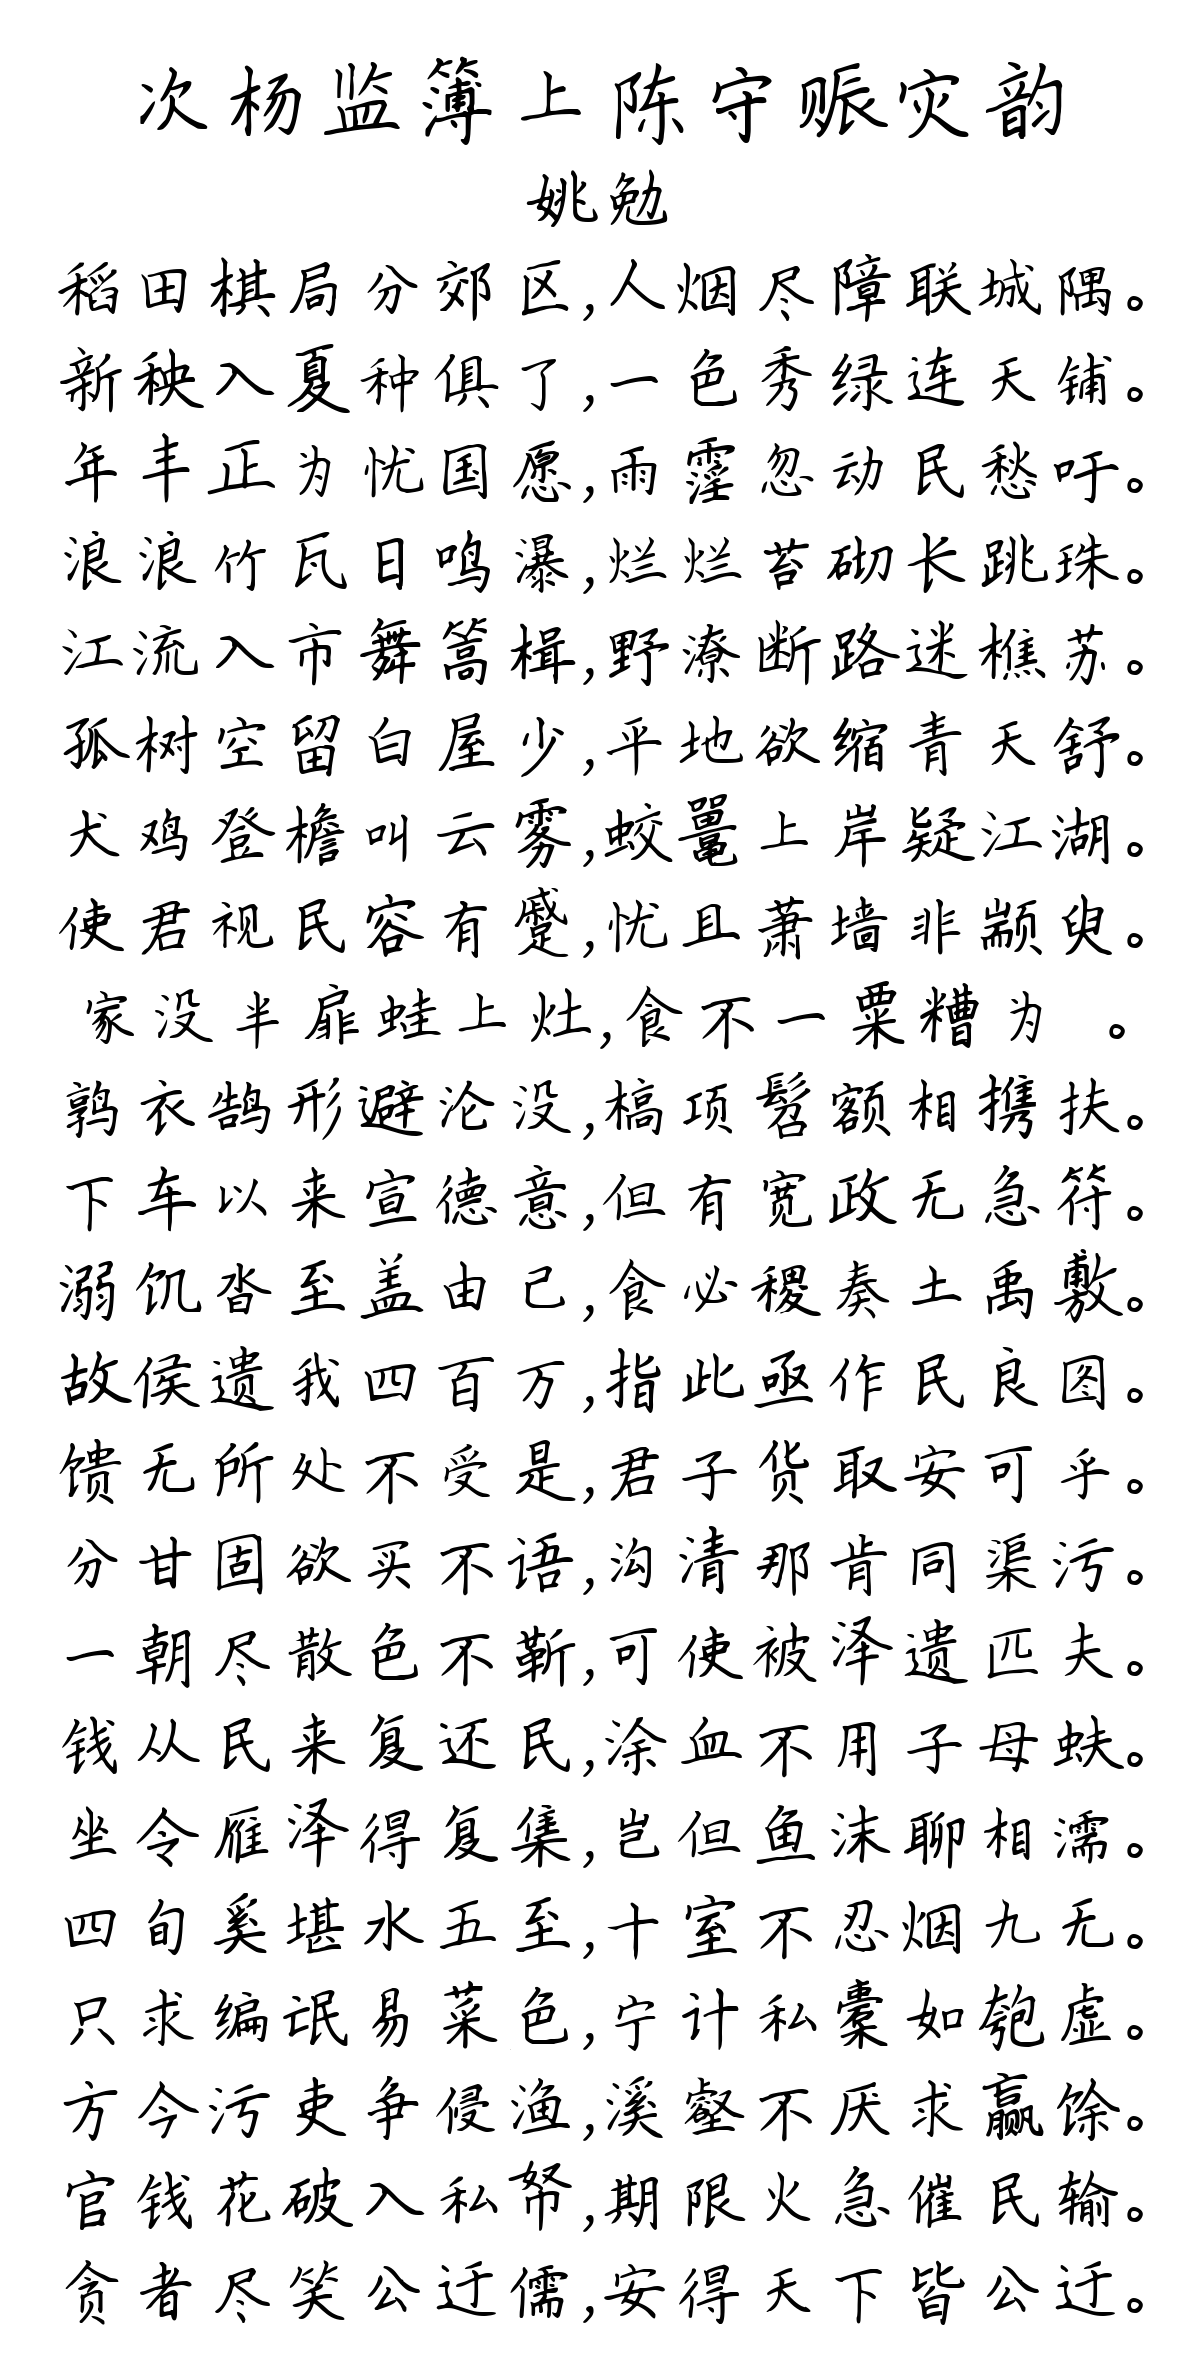 次杨监簿上陈守赈灾韵
姚勉
稻田棋局分郊区,人烟尽障联城隅。
新秧入夏种俱了,一色秀绿连天铺。
年丰正为忧国愿,雨霪忽动民愁吁。
浪浪竹瓦日鸣瀑,烂烂苔砌长跳珠。
江流入市舞篙楫,野潦断路迷樵苏。
孤树空留白屋少,平地欲缩青天舒。
犬鸡登檐叫云雾,蛟鼍上岸疑江湖。
使君视民容有蹙,忧且萧墙非颛臾。
家没半扉蛙上灶,食不一粟糟为 。
鹑衣鹄形避沦没,槁项髫额相携扶。
下车以来宣德意,但有宽政无急符。
溺饥沓至盖由己,食必稷奏土禹敷。
故侯遗我四百万,指此亟作民良图。
馈无所处不受是,君子货取安可乎。
分甘固欲买不语,沟清那肯同渠污。
一朝尽散色不靳,可使被泽遗匹夫。
钱从民来复还民,涂血不用子母蚨。
坐令雁泽得复集,岂但鱼沫聊相濡。
四旬奚堪水五至,十室不忍烟九无。
只求编氓易菜色,宁计私橐如匏虚。
方今污吏争侵渔,溪壑不厌求赢馀。
官钱花破入私帑,期限火急催民输。
贪者尽笑公迂儒,安得天下皆公迂。